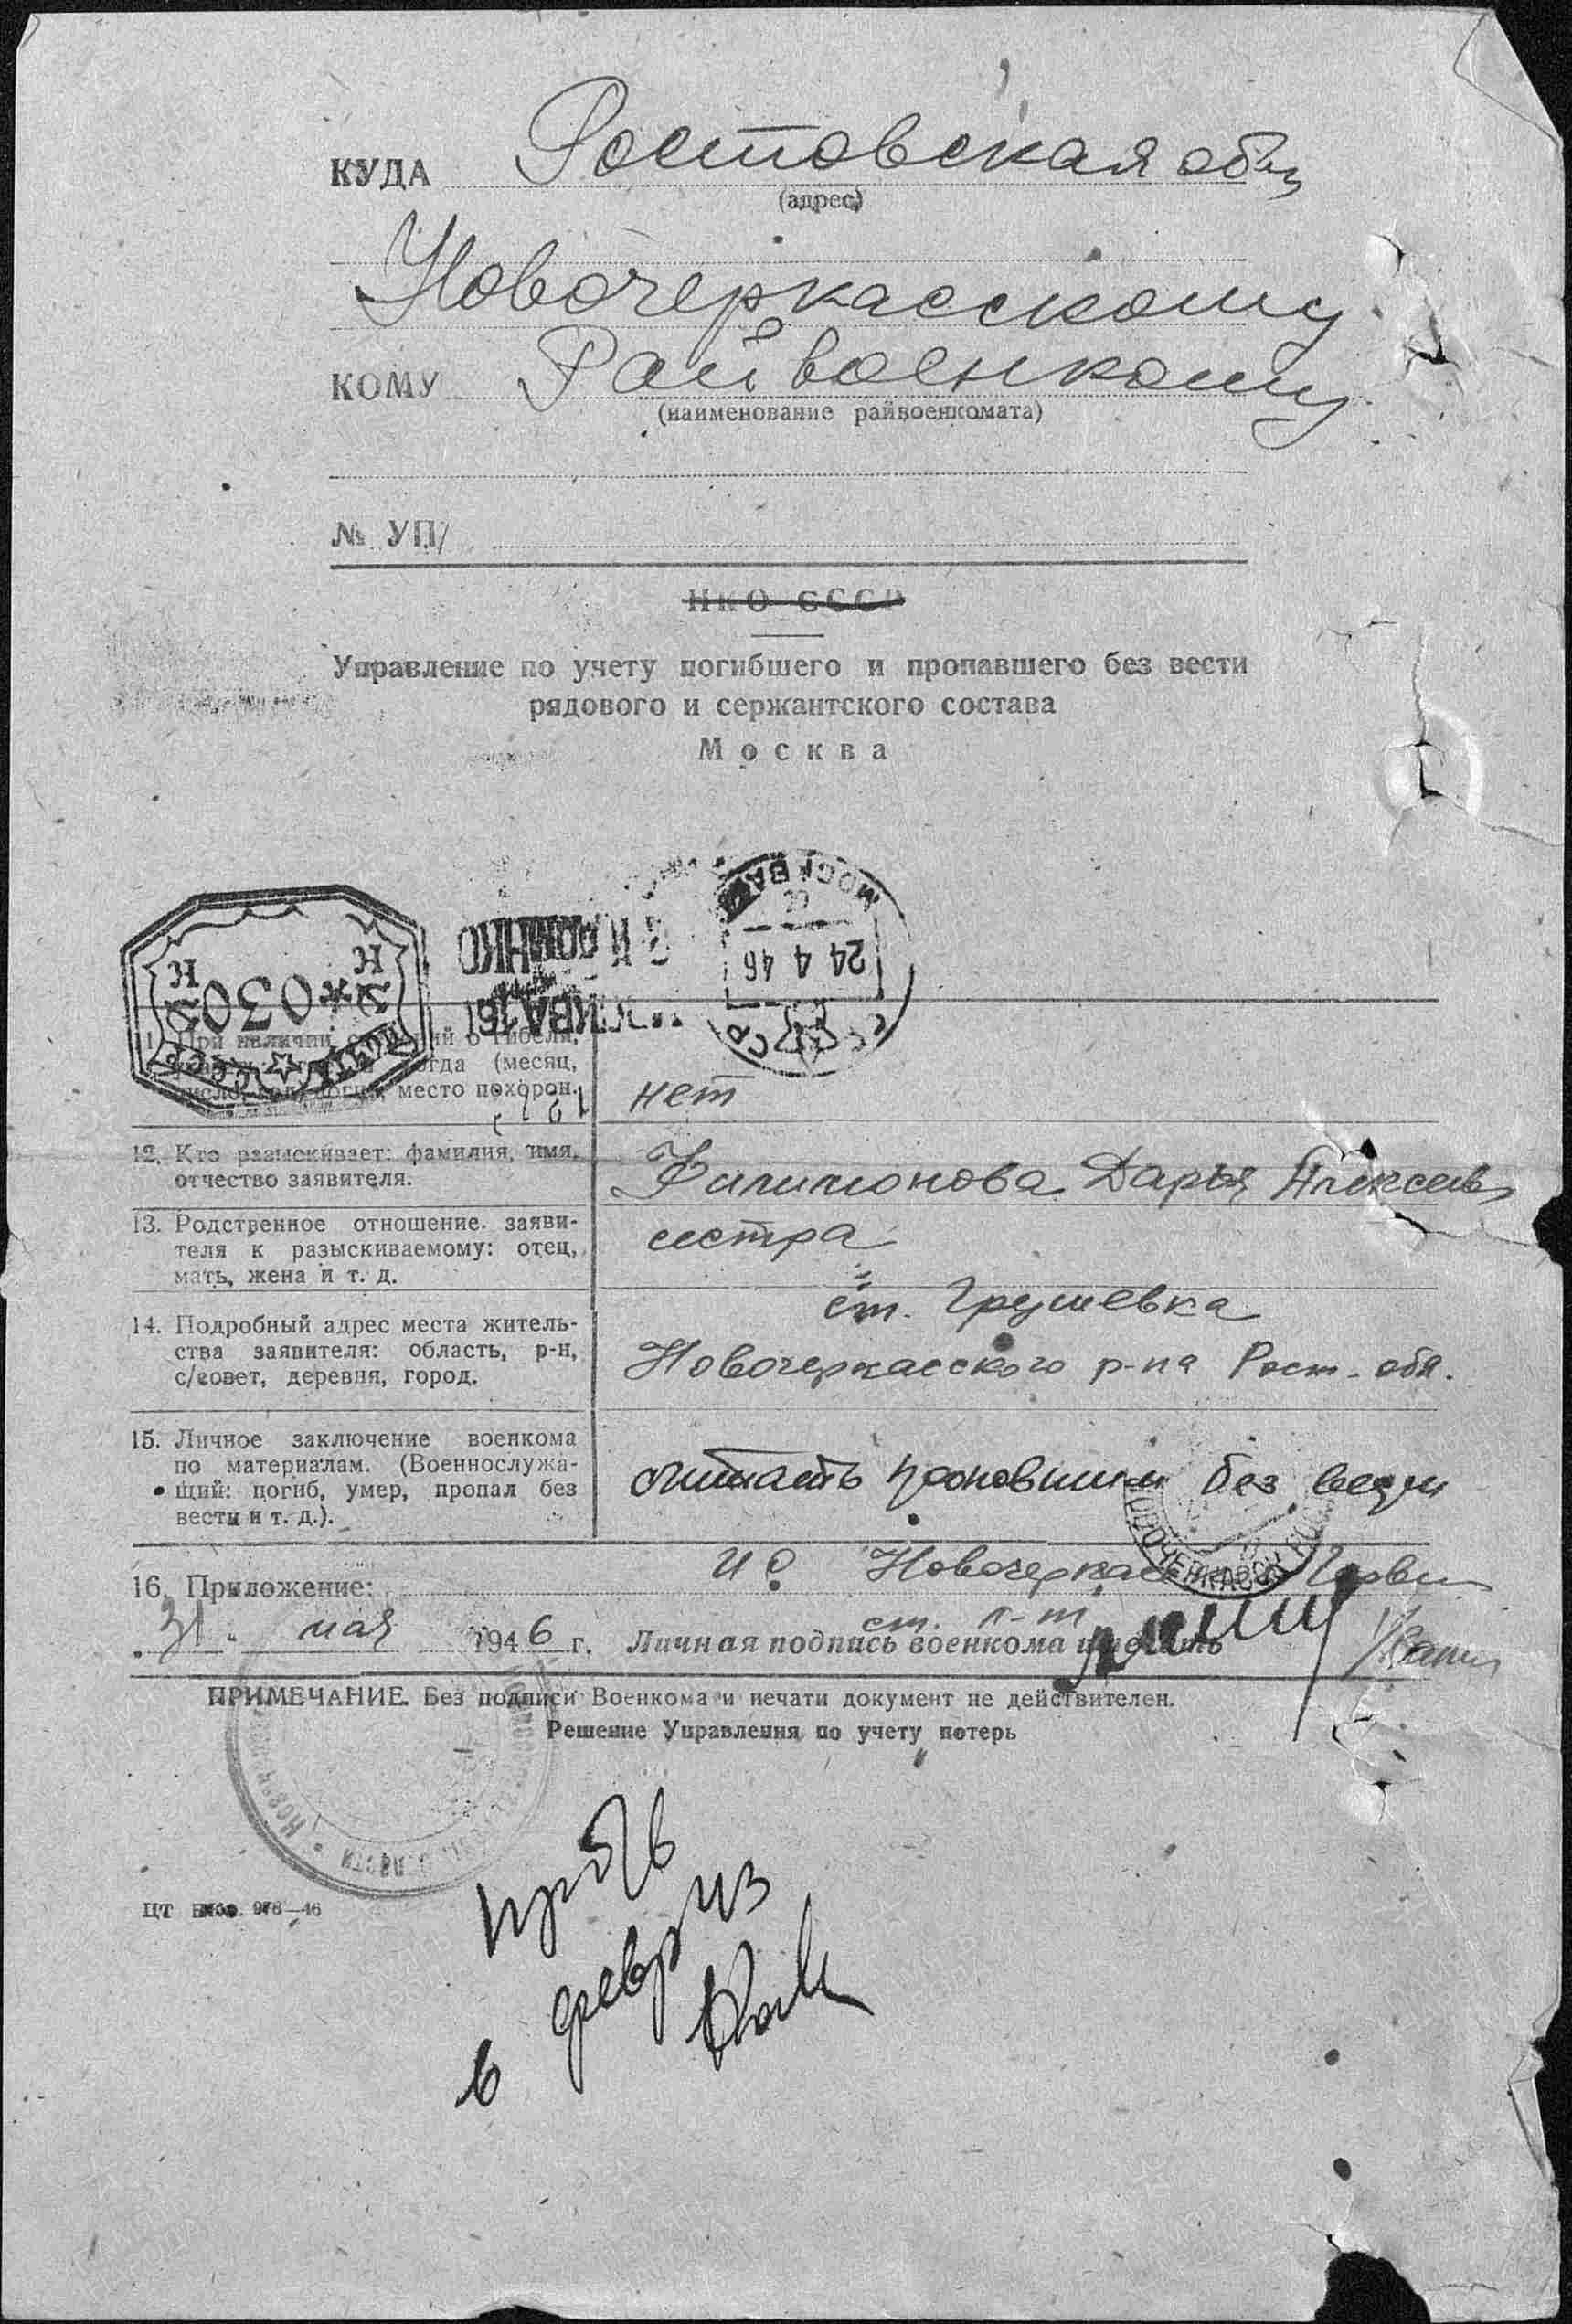 КУДА Ростовская обл
(адрес)
Новочеркасскому
КОМУ Райвоенкому
(наименование райвоенкомата)
№ УП/
НКО СССР
Управление по учету погибшего и пропавшего без вести
рядового и сержантского состава
Москва
МОСКВА
24 4 46
СССР
К К
030
ПОЧТА СССР
МОСКВА
11. При наличии о гибели,
когда (месяц,
место похорон.
нет
12. Кто разыскивает: фамилия, имя,
отчество заявителя.
Филимонова Дарья Алексеев
13. Родственное отношение заяви-
теля к разыскиваемому: отец,
мать, жена и т. д.
сестра
14. Подробный адрес места житель-
ства заявителя: область, р-н,
с/совет, деревня, город.
ст. Грушевка
Новочеркасского р-на Рост. обл.
15. Личное заключение военкома
по материалам. (Военнослужа-
щий: погиб, умер, пропал без
вести и т. д.).
считать проповшим без вести
16. Приложение:
ст. л-т
31 мая 1946 г. Личная подпись военкома и печать
ПРИМЕЧАНИЕ. Без подписи Военкома и печати документ не действителен.
Решение Управления по учету потерь
прбв
в февр
ЦТ 976—46